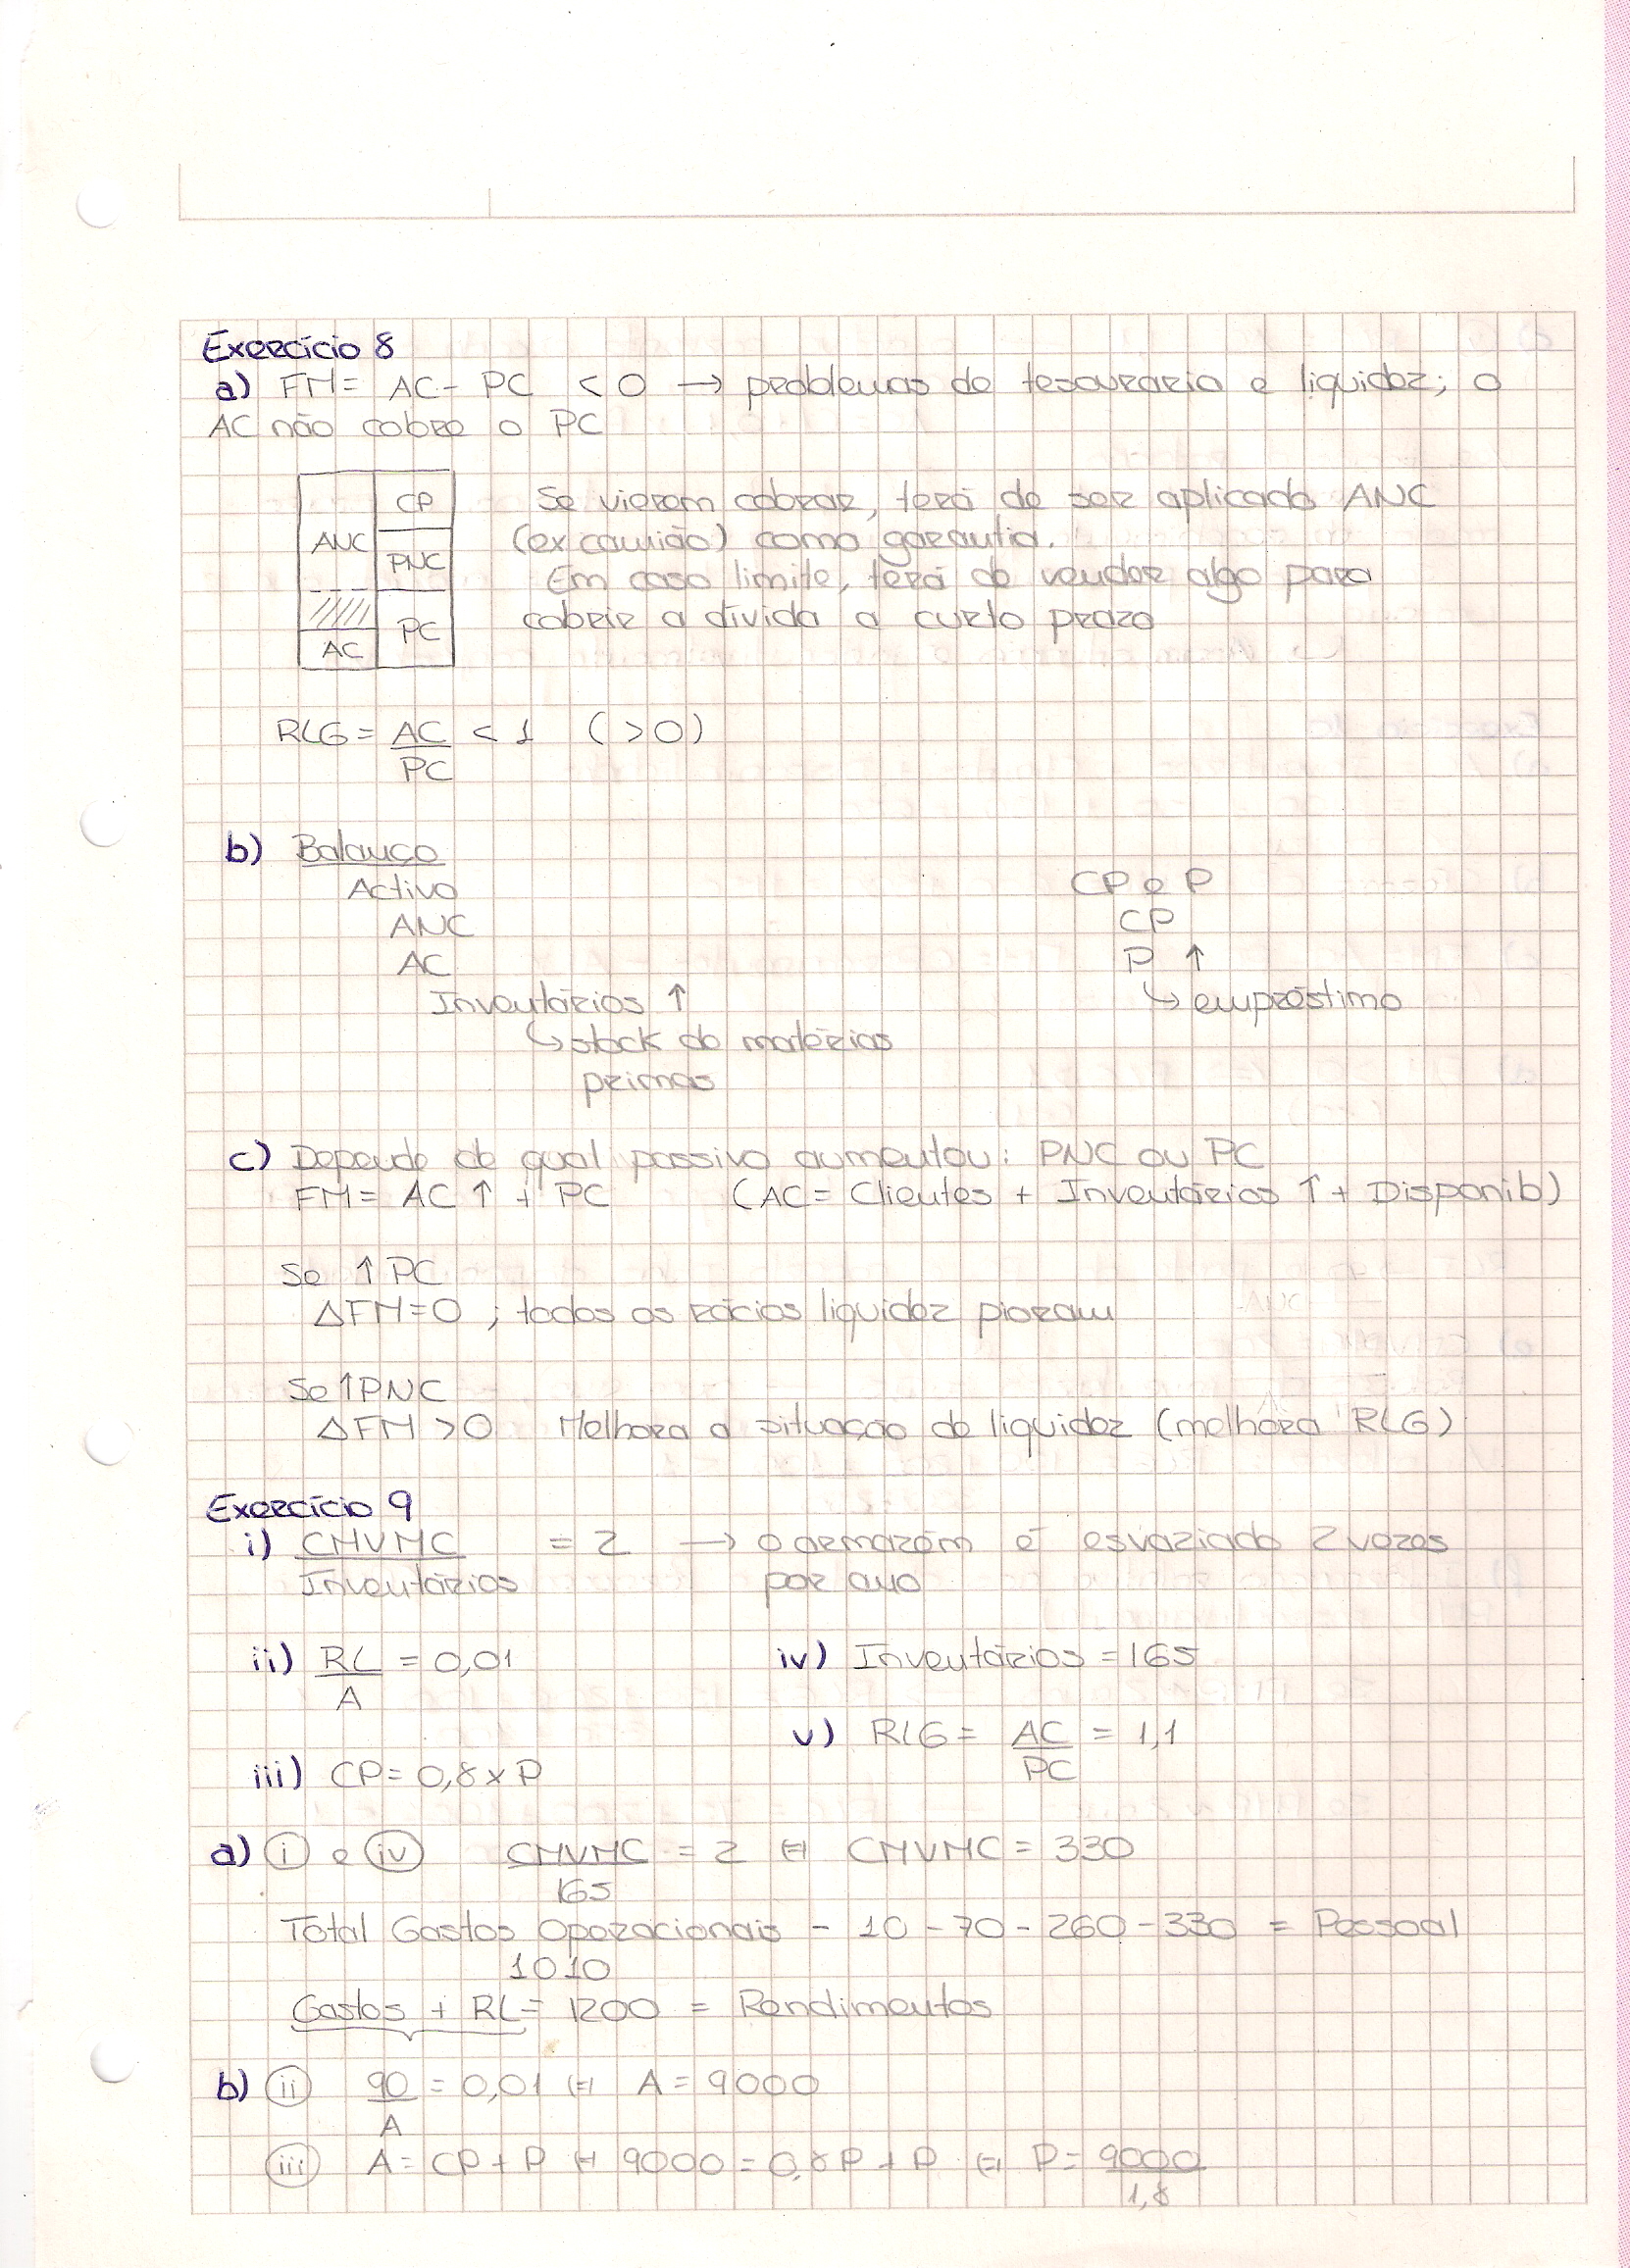 Exercício 8
a) FM = AC - PC < 0 → problemas de tesouraria e liquidez; o
AC não cobre o PC
CP
ANC
PNC
PC
AC
Se vierem cobrar, terá de ser aplicado ANC
(ex camião) como garantia.
Em caso limite, terá de vender algo para
cobrir a dívida a curto prazo
RLG = AC/PC < 1 (>0)
b) Balanço
Activo
ANC
AC
Inventários ↑
↳ stock de matérias
primas
CP e P
CP
P ↑
↳ empréstimo
c) Depende de qual passivo aumentou: PNC ou PC
FM = AC ↑ + PC (AC = Clientes + Inventários ↑ + Disponib)
Se ↑ PC
ΔFM=0 ; todos os rácios liquidez pioram
Se ↑PNC
ΔFM >0 Melhora a situação de liquidez (melhora RLG)
Exercício 9
i) CMVMC/Inventários = 2 → o armazém é esvaziado 2 vezes
por ano
ii) RL/A = 0,01
iii) CP = 0,8 x P
iv) Inventários = 165
v) RLG = AC/PC = 1,1
a) i e iv CMVMC/165 = 2 ⇔ CMVMC = 330
Total Gastos Operacionais - 10 - 70 - 260 - 330 = Pessoal
1010
Gastos + RL = 1200 = Rendimentos
b) ii 90/A = 0,01 ⇔ A = 9000
iii A = CP + P ⇔ 9000 = 0,8P + P ⇔ P = 9000/1,8